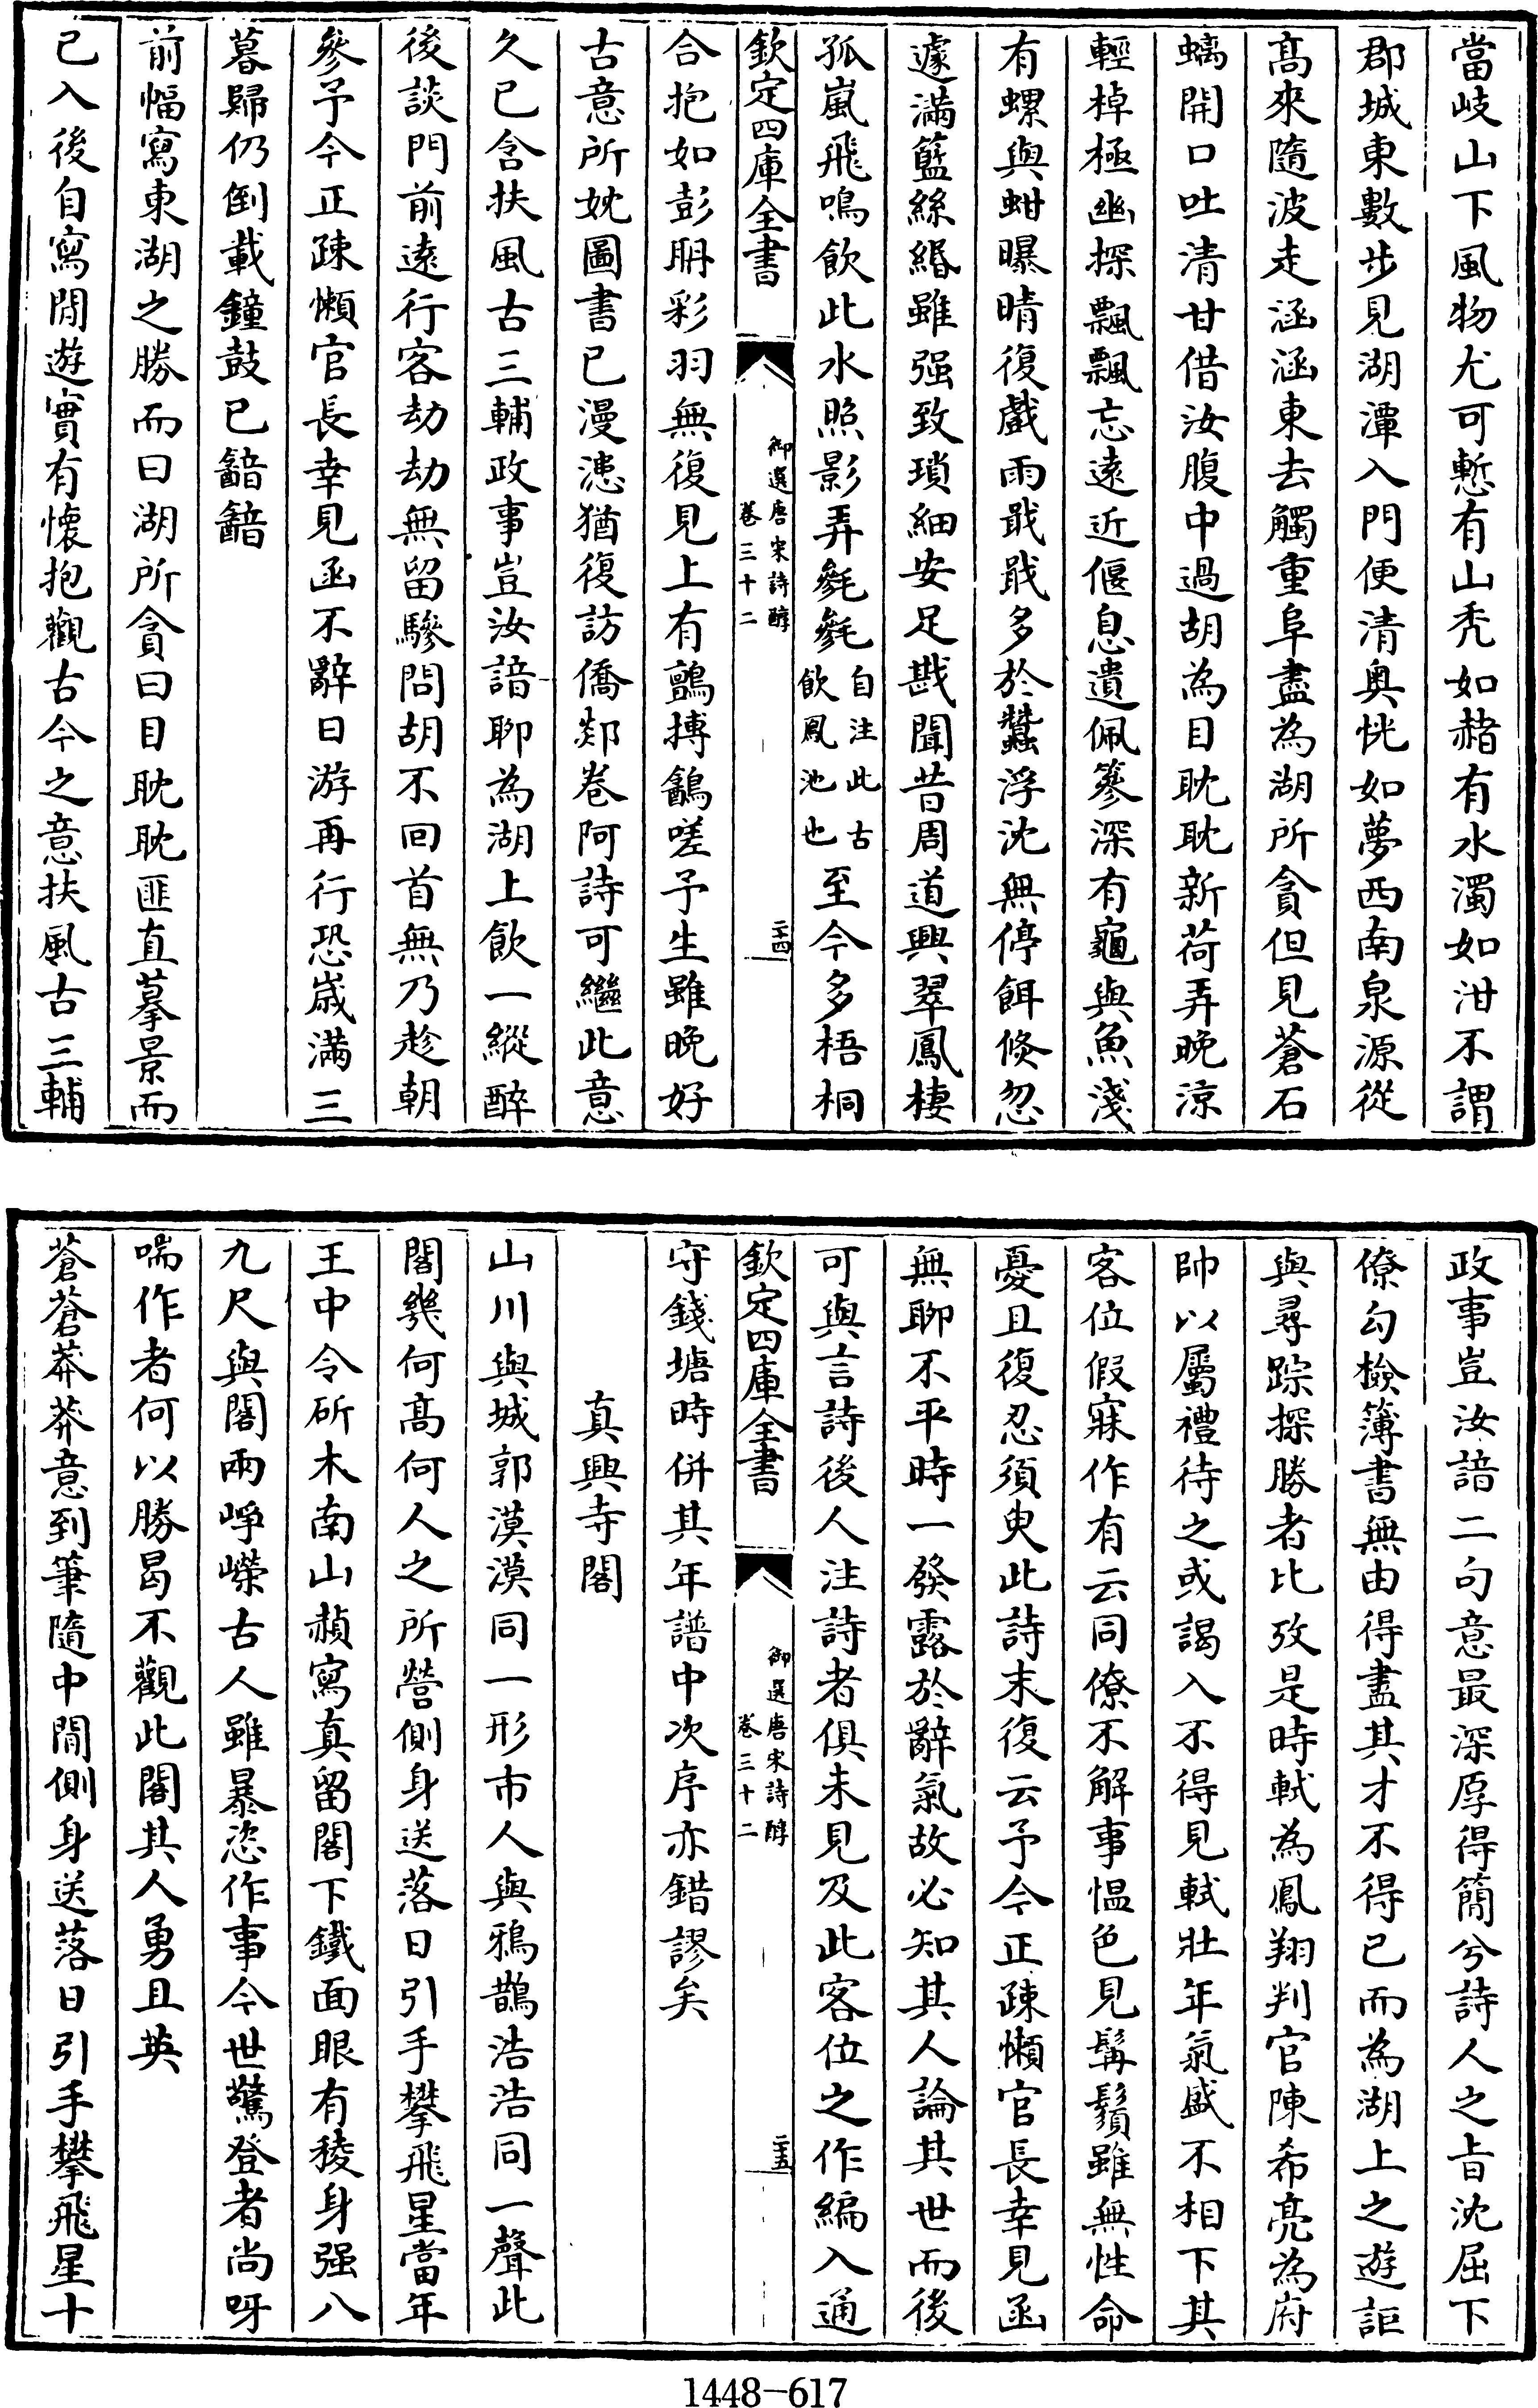 當岐山下風物尤可慙有山秃如赭有水濁如泔不謂
郡城東數步見湖潭入門便清奥恍如夢西南泉源從
髙來隨波走涵涵東去觸重阜盡為湖所貪但見蒼石
螭開口吐清甘借汝腹中過胡為目耽耽新荷弄晚涼
輕棹極幽探飄飄忘逺近偃息遺佩篸深有龜與魚淺
有螺與蚶曝晴復戲雨戢戢多於蠶浮沈無停餌倐忽
遽滿籃絲緡雖强致瑣細安足戡聞昔周道興翠鳳棲
孤嵐飛鳴飲此水照影弄毿毿自注此古飲鳳池也至今多梧桐
欽定四庫全書
御選唐宋詩醇
卷三十二
二十四
合抱如彭聃彩羽無復見上有鸇搏鷂嗟予生雖晚好
古意所妉圖書已漫漶猶復訪僑郯卷阿詩可繼此意
久已含扶風古三輔政事豈汝諳聊為湖上飲一縱醉
後談門前逺行客劫劫無留驂問胡不回首無乃趁朝
參予今正疎懶官長幸見函不辭日游再行恐嵗滿三
暮歸仍倒載鐘鼓已韽韽
前幅寫東湖之勝而曰湖所貪曰目耽耽匪直摹景而
已入後自寫閒遊實有懷抱觀古今之意扶風古三輔
政事豈汝諳二句意最深厚得簡兮詩人之㫖沈屈下
僚勾檢簿書無由得盡其才不得已而為湖上之遊詎
與尋踪探勝者比攷是時軾為鳳翔判官陳希亮為府
帥以屬禮待之或謁入不得見軾壯年氣盛不相下其
客位假寐作有云同僚不解事愠色見髯鬚雖無性命
憂且復忍須臾此詩末復云予今正疎懶官長幸見函
無聊不平時一發露於辭氣故必知其人論其世而後
可與言詩後人注詩者俱未見及此客位之作編入通
欽定四庫全書
御選唐宋詩醇
卷三十二
二十五
守錢塘時併其年譜中次序亦錯謬矣
真興寺閣
山川與城郭漠漠同一形市人與鴉鵲浩浩同一聲此
閣幾何髙何人之所營側身送落日引手攀飛星當年
王中令斫木南山赬寫真留閣下鐵面眼有稜身强八
九尺與閣兩崢嶸古人雖暴恣作事今世驚登者尚呀
喘作者何以勝曷不觀此閣其人勇且英
蒼蒼莽莽意到筆隨中間側身送落日引手攀飛星十
1448-617